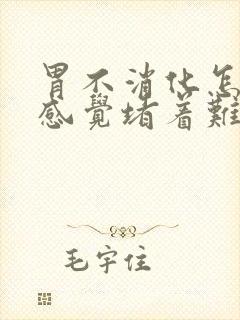 胃不消化怎
感覺堵着難
毛宇住